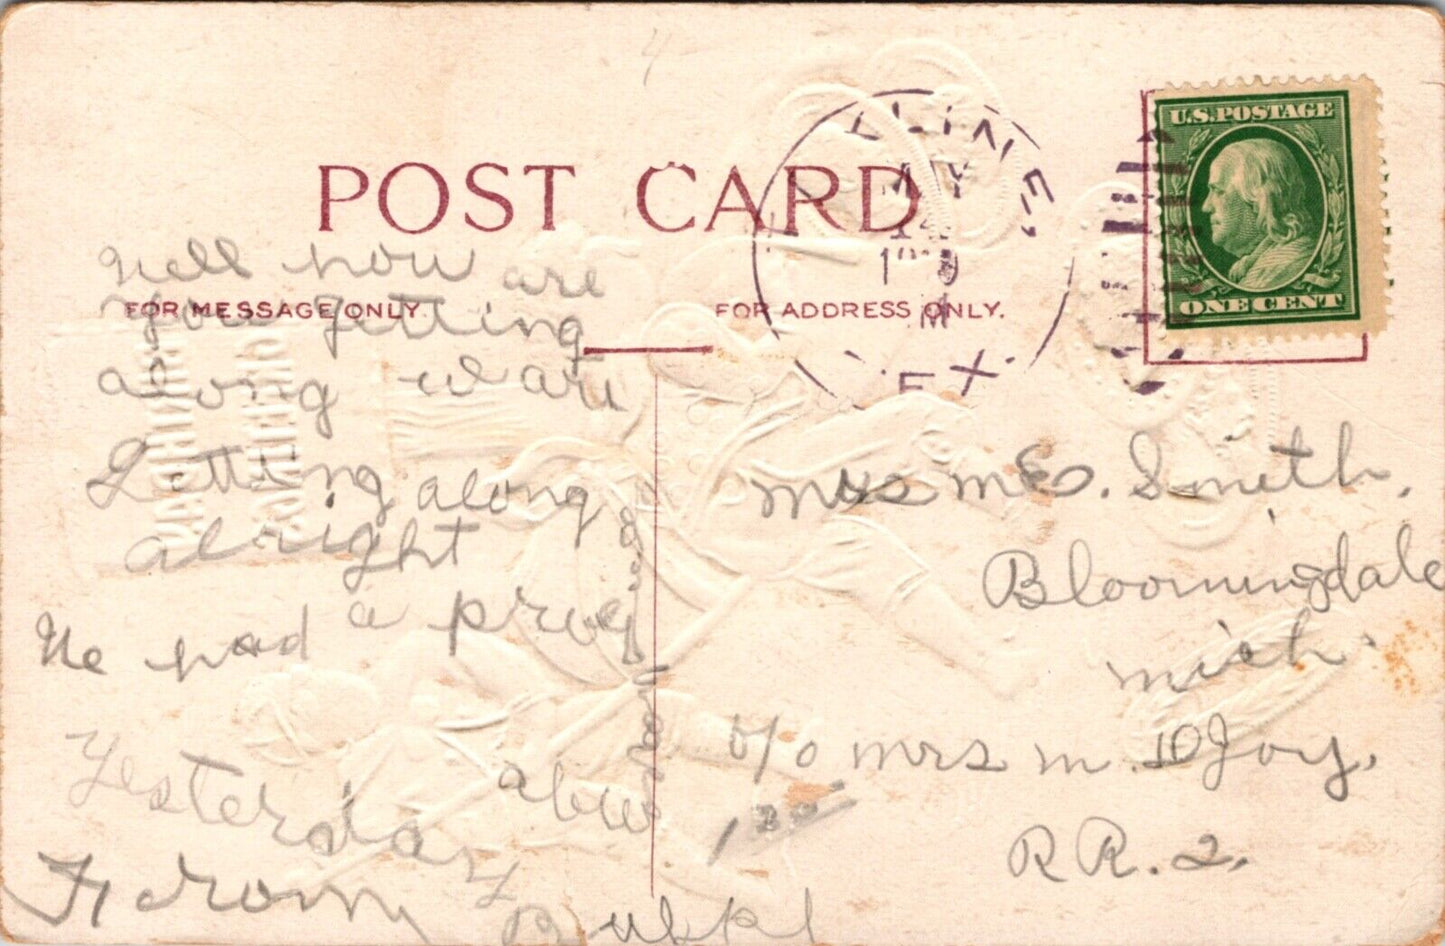 POST CARD
FOR MESSAGE ONLY.
FOR ADDRESS ONLY.
U.S. POSTAGE
ONE CENT
LINE,
MY
14
M
EX.
Well how are
you getting
along we are
Getting along
alright
We had a
Yesterday
From
Miss M E. Smith,
Bloomingdale
Mich.
c/o Mrs M. D Joy,
R R. 2,